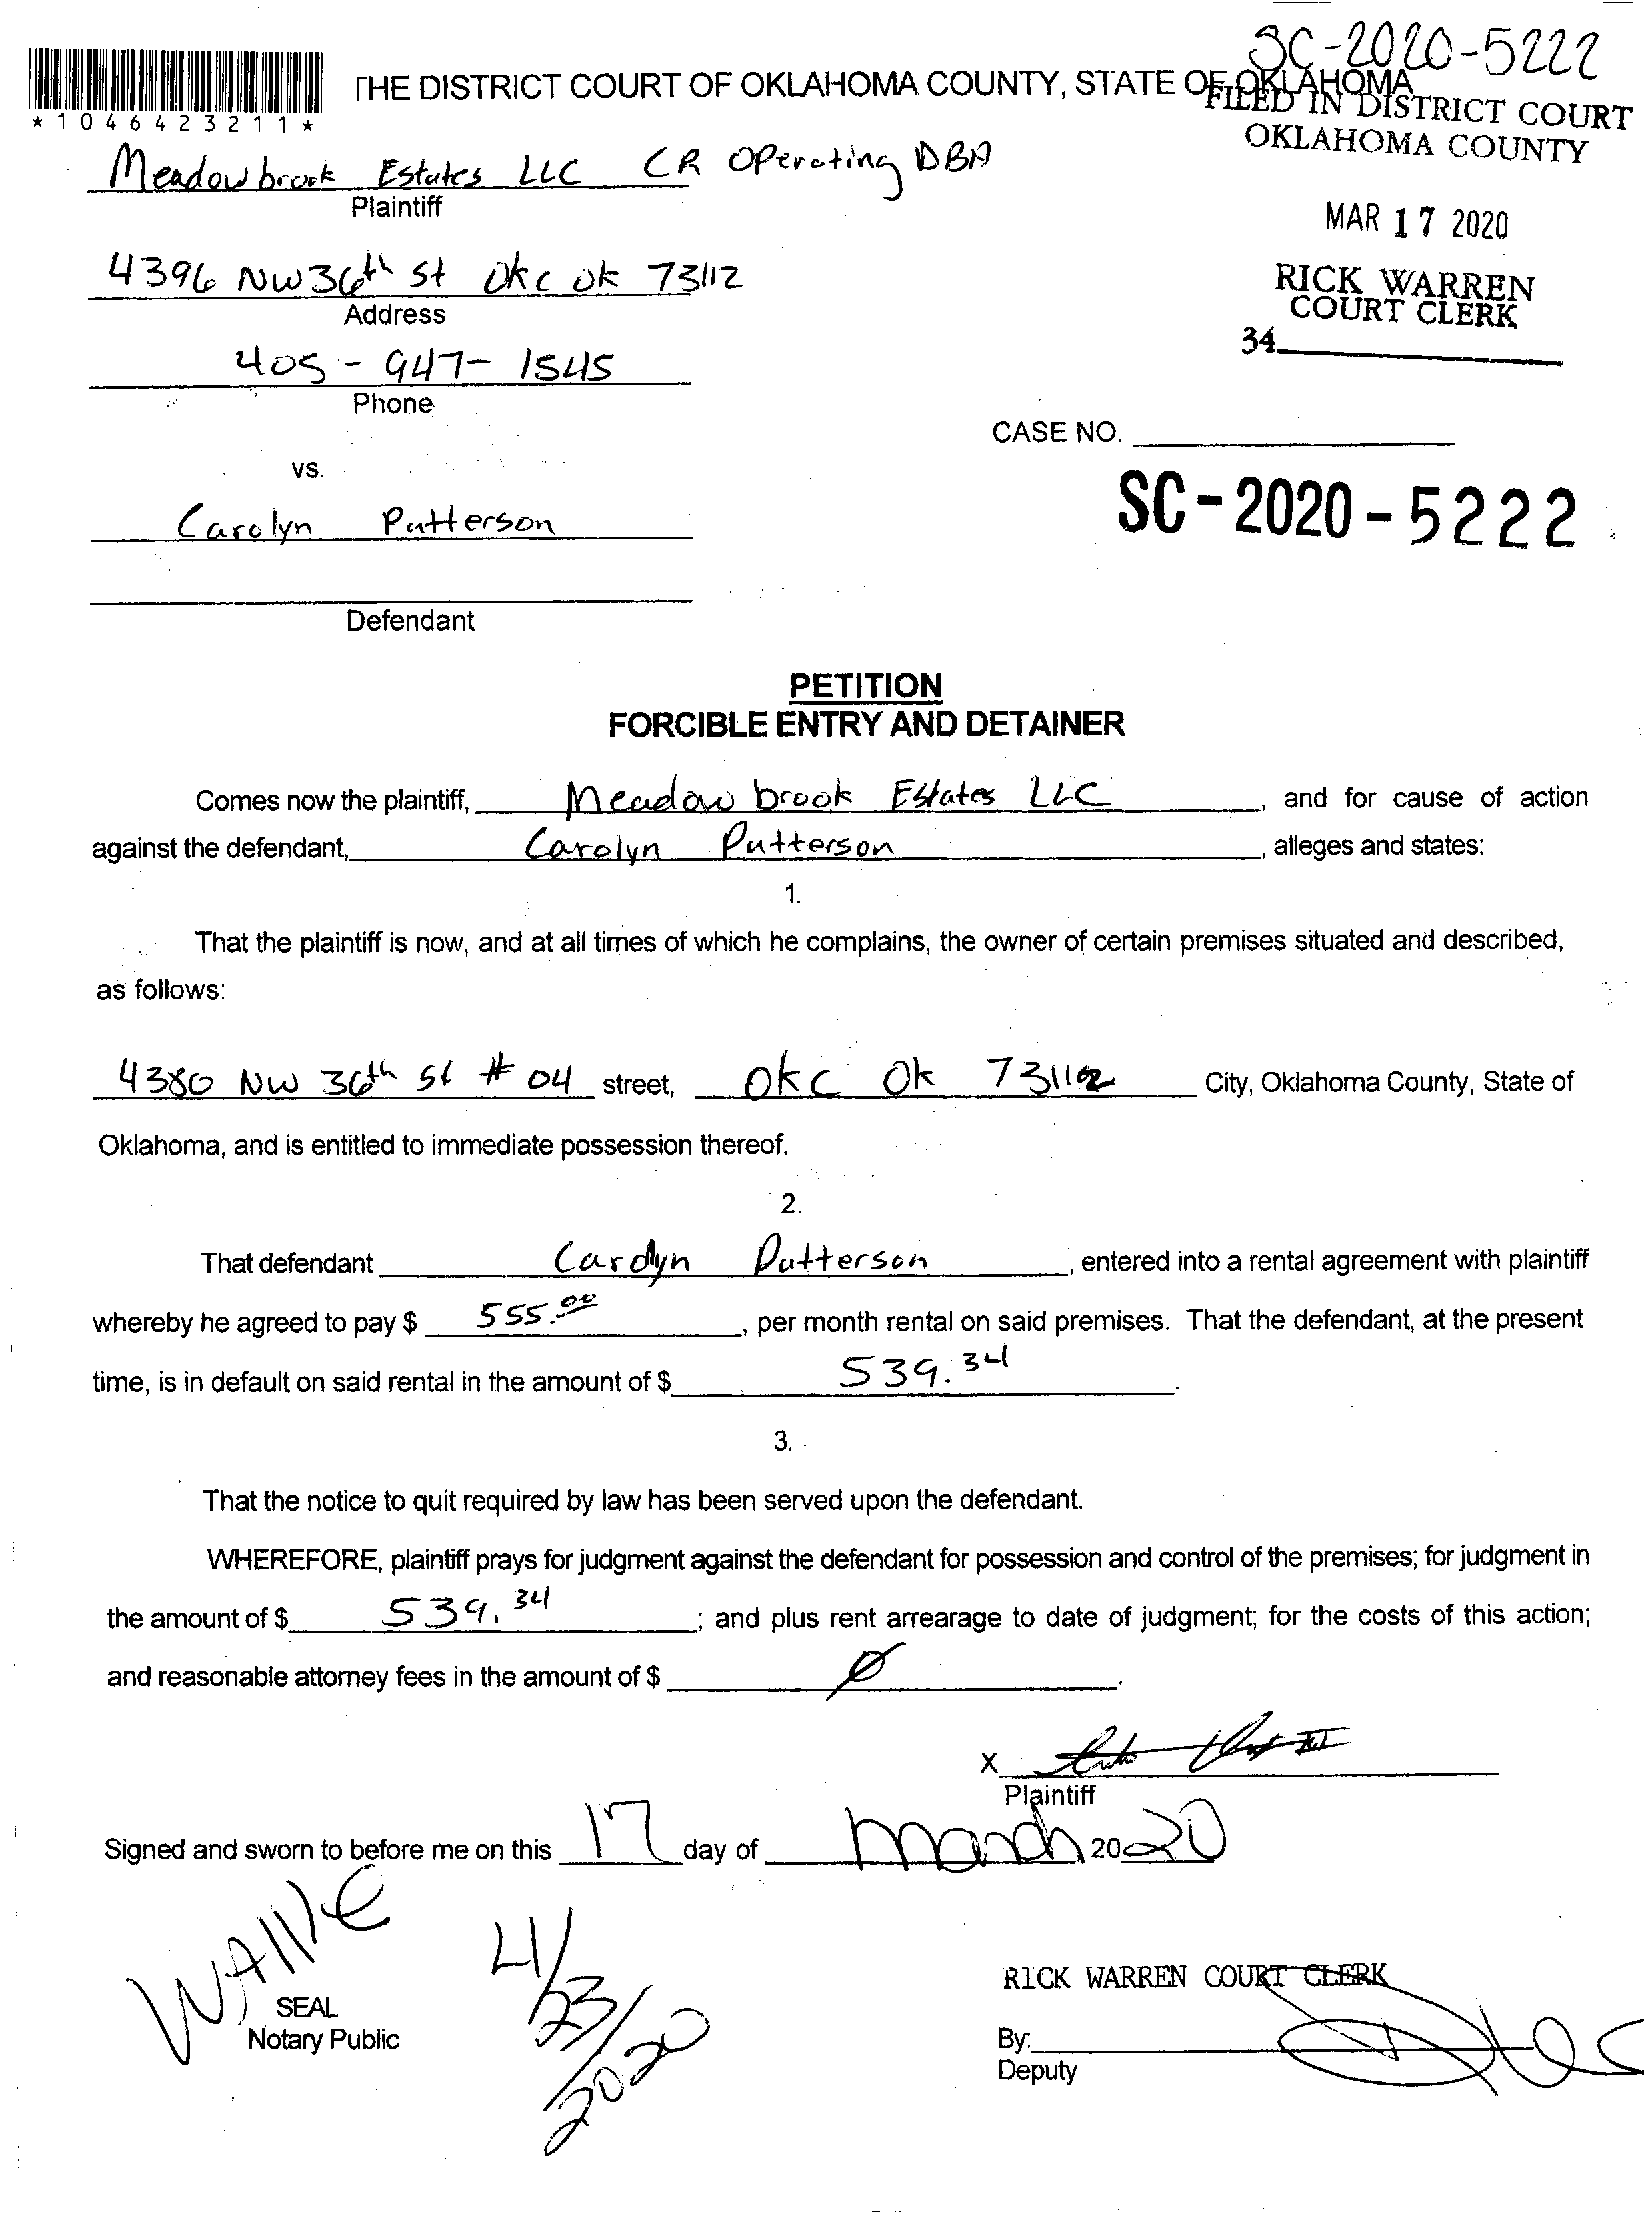 SC-2020-5222
THE DISTRICT COURT OF OKLAHOMA COUNTY, STATE OF OKLAHOMA
*1046423211*
FILED IN DISTRICT COURT
OKLAHOMA COUNTY
Meadowbrook Estates LLC CR Operating DBA
Plaintiff
MAR 17 2020
4396 NW 36th St Okc Ok 73112
Address
RICK WARREN
COURT CLERK
34
405-947-1545
Phone
CASE NO.
vs.
SC-2020-5222
Carolyn Patterson
Defendant
PETITION
FORCIBLE ENTRY AND DETAINER
Comes now the plaintiff, Meadowbrook Estates LLC, and for cause of action
against the defendant, Carolyn Patterson, alleges and states:
1.
That the plaintiff is now, and at all times of which he complains, the owner of certain premises situated and described,
as follows:
4380 NW 36th St # 04 street, Okc Ok 73112 City, Oklahoma County, State of
Oklahoma, and is entitled to immediate possession thereof.
2.
That defendant Carolyn Patterson, entered into a rental agreement with plaintiff
whereby he agreed to pay $ 555.00, per month rental on said premises. That the defendant, at the present
time, is in default on said rental in the amount of $ 539.34.
3.
That the notice to quit required by law has been served upon the defendant.
WHEREFORE, plaintiff prays for judgment against the defendant for possession and control of the premises; for judgment in
the amount of $ 539.34; and plus rent arrearage to date of judgment; for the costs of this action;
and reasonable attorney fees in the amount of $ Ø.
X
Plaintiff
Signed and sworn to before me on this 17 day of March 2020
WAIVE
4/23/2020
SEAL
Notary Public
RICK WARREN COURT CLERK
By:
Deputy